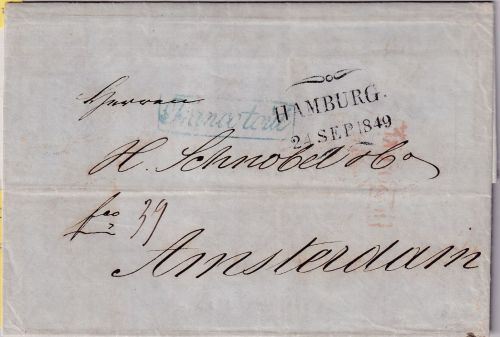 Herren
Franco tout
HAMBURG.
24 SEP 1849
H. Schnobel & Co
fco 39
Amsterdam